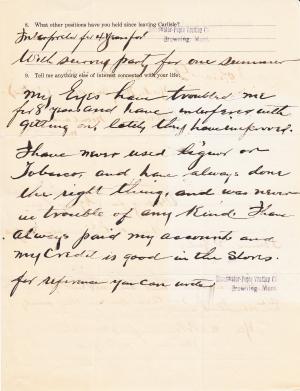 8. What other positions have you held since leaving Carlisle?
Interpreter for 4 years for
Browning, Mont.
With survey party for one summer
9. Tell me anything else of interest connected with your life.
My Eyes have troubled me
for 8 years and have interfered with
getting on, lately they have improved.
I have never used liquor or
Tobacco, and have always done
the right thing, and was never
in trouble of any Kind. I have
always paid my accounts and
my Credit is good in the Stores.
for reference you can write
Browning, Mont.